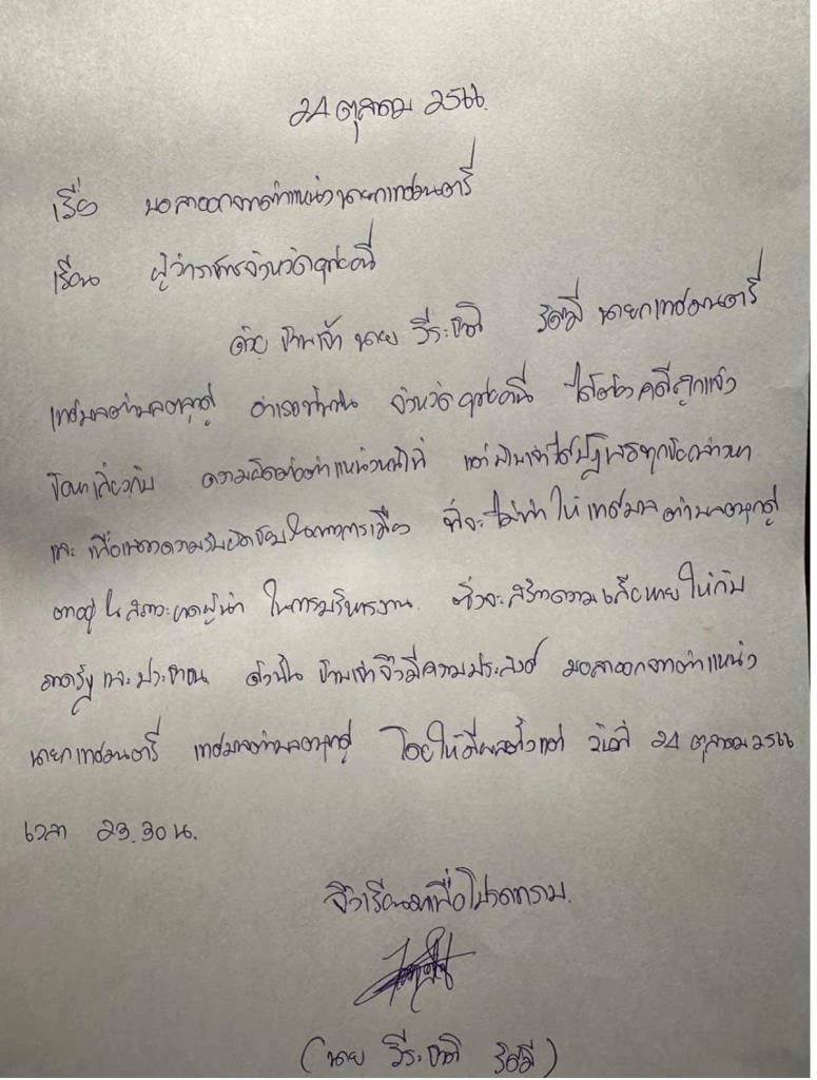 24 ตุลาคม 2566.
เรื่อง ขอลาออกจากตำแหน่งนายกเทศมนตรี
เรียน ผู้ว่าราชการจังหวัดอุทัยธานี
ด้วย ข้าพเจ้า นาย วีระชาติ รัศมี นายกเทศมนตรี
เทศบาลตำบลตลุกดู่ อำเภอทัพทัน จังหวัดอุทัยธานี ได้ต้องคดีถูกแจ้ง
ข้อหาเกี่ยวกับ ความผิดต่อตำแหน่งหน้าที่ แต่ข้าพเจ้าได้ปฏิเสธทุกข้อกล่าวหา
และ เพื่อแสดงความรับผิดชอบในทางการเมือง ที่จะไม่ทำให้ เทศบาลตำบลตลุกดู่
ตกอยู่ใน สภาวะขาดผู้นำ ในการบริหารงาน. ซึ่งจะสร้างความเสียหายให้กับ
ภาครัฐ และ ประชาชน ดังนั้น ข้าพเจ้าจึงมีความประสงค์ ขอลาออกจากตำแหน่ง
นายกเทศมนตรี เทศบาลตำบลตลุกดู่ โดยให้มีผลตั้งแต่ วันที่ 24 ตุลาคม 2566
เวลา 23.30 น.
จึงเรียนมาเพื่อโปรดทราบ.
(นาย วีระชาติ รัศมี)